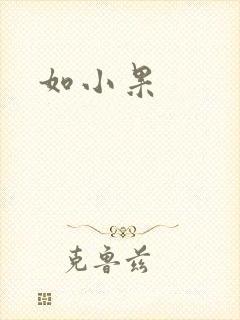 如小果
克鲁兹